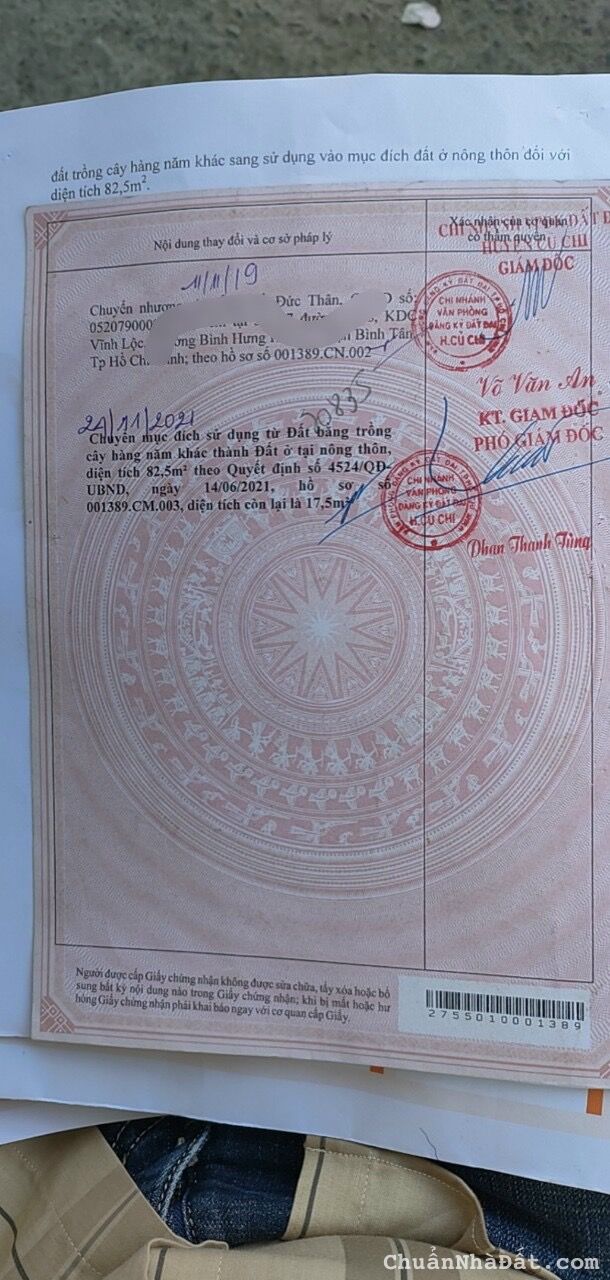 đất trồng cây hàng năm khác sang sử dụng vào mục đích đất ở nông thôn đối với
diện tích 82,5m².
Nội dung thay đổi và cơ sở pháp lý
Xác nhận của cơ quan
có thẩm quyền
CHI NHÁNH ĐẤT Đ
HUYỆN CỦ CHI
GIÁM ĐỐC
11/11/19
Chuyển nhượng Đức Thân, số:
05207900 KDC
Vĩnh Lộc, Bình Hưng Bình Tân,
Tp Hồ Ch inh; theo hồ sơ số 001389.CN.002
CHI NHÁNH
VĂN PHÒNG
ĐĂNG KÝ ĐẤT ĐAI
H.CỦ CHI
Võ Văn An
20835
24/11/2021
Chuyển mục đích sử dụng từ Đất bằng trồng
cây hàng năm khác thành Đất ở tại nông thôn,
diện tích 82,5m² theo Quyết định số 4524/QĐ-
UBND, ngày 14/06/2021, hồ sơ số
001389.CM.003, diện tích còn lại là 17,5m²
KT. GIÁM ĐỐC
PHÓ GIÁM ĐỐC
CHI NHÁNH
VĂN PHÒNG
ĐĂNG KÝ ĐẤT ĐAI
H.CỦ CHI
Phan Thanh Tùng
Người được cấp Giấy chứng nhận không được sửa chữa, tẩy xóa hoặc bổ
sung bất kỳ nội dung nào trong Giấy chứng nhận; khi bị mất hoặc hư
hỏng Giấy chứng nhận phải khai báo ngay với cơ quan cấp Giấy.
2755010001389
ChuẩnNhàĐất.com